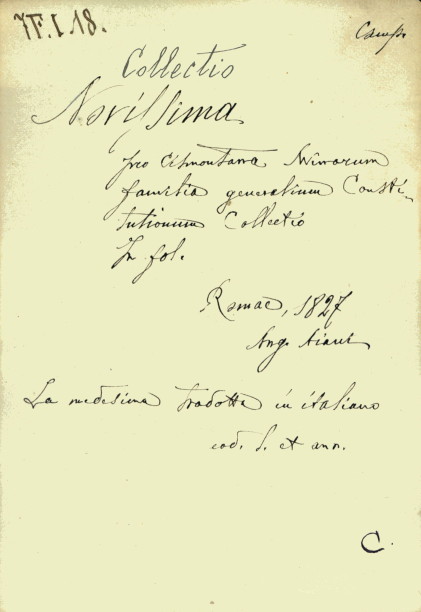 7F.I.18.
Camp.
Collectio
Novissima
pro Cismontana Minorum
familia generalium Consti-
tutionum Collectio
In fol.
Romae, 1827
Ang. Aiani
La medesima tradotta in italiano
eod. l. et ann.
C.